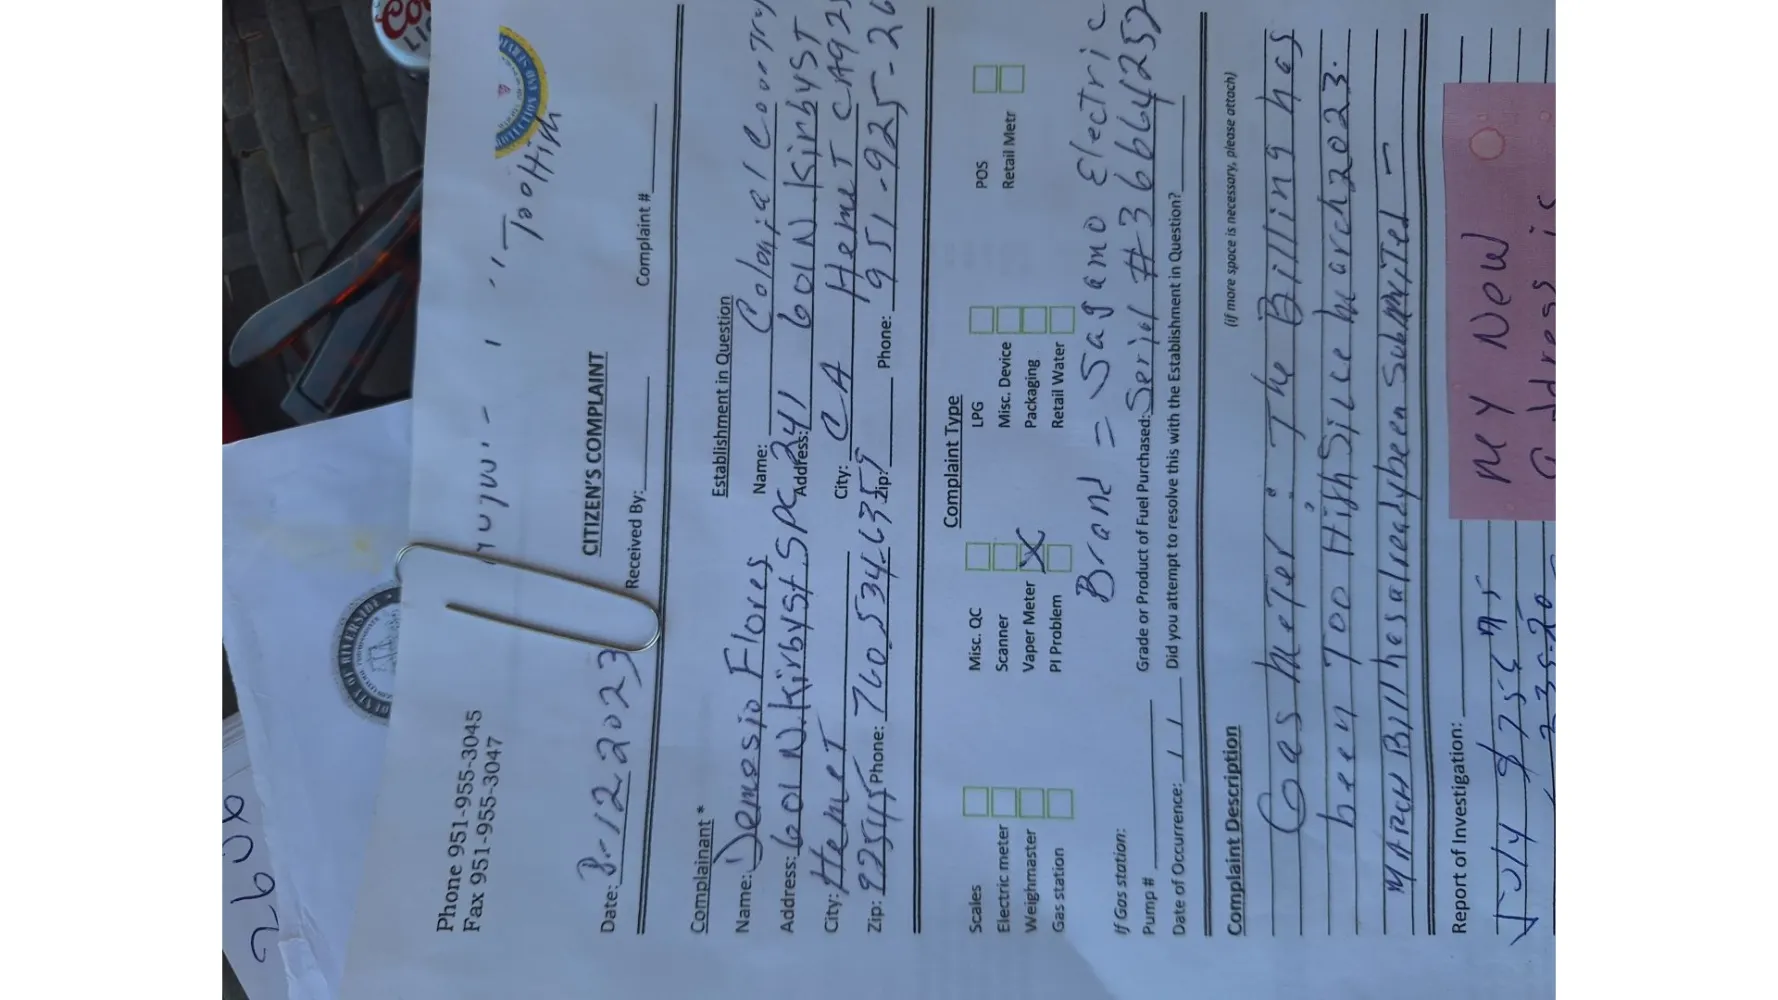 Phone 951-955-3045
Fax 951-955-3047
Too High
CITIZEN'S COMPLAINT
Date: 8-12-2023 Received By: Complaint #
Complainant * Establishment in Question
Name: Demesio Flores Name: Colonial Country
Address: 601 N. Kirby St SPC 241 Address: 601 N. Kirby ST
City: Hemet City: CA Hemet CA 92
Zip: 92545 Phone: 760.534.6355 Zip: Phone: 951-925-26
Complaint Type
Scales Misc. QC LPG POS
Electric meter Scanner Misc. Device Retail Metr
Weighmaster Vaper Meter X Packaging
Gas station PI Problem Retail Water
Brand = Sagamo Electric
If Gas station:
Pump # Grade or Product of Fuel Purchased: Seriol #36664252
Date of Occurrence: / / Did you attempt to resolve this with the Establishment in Question?
Complaint Description (if more space is necessary, please attach)
Gas meter: The Billing has
been Too High Sice march 2023.
MARCH Bill has already been Submited -
Report of Investigation:
MY New
Address is
July
COUNTY OF RIVERSIDE
Coo
LIG